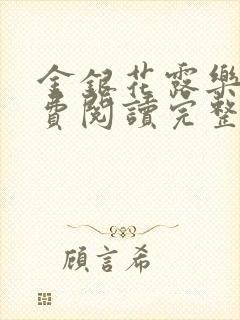 金銀花露樂
費閱讀完整
顧言希